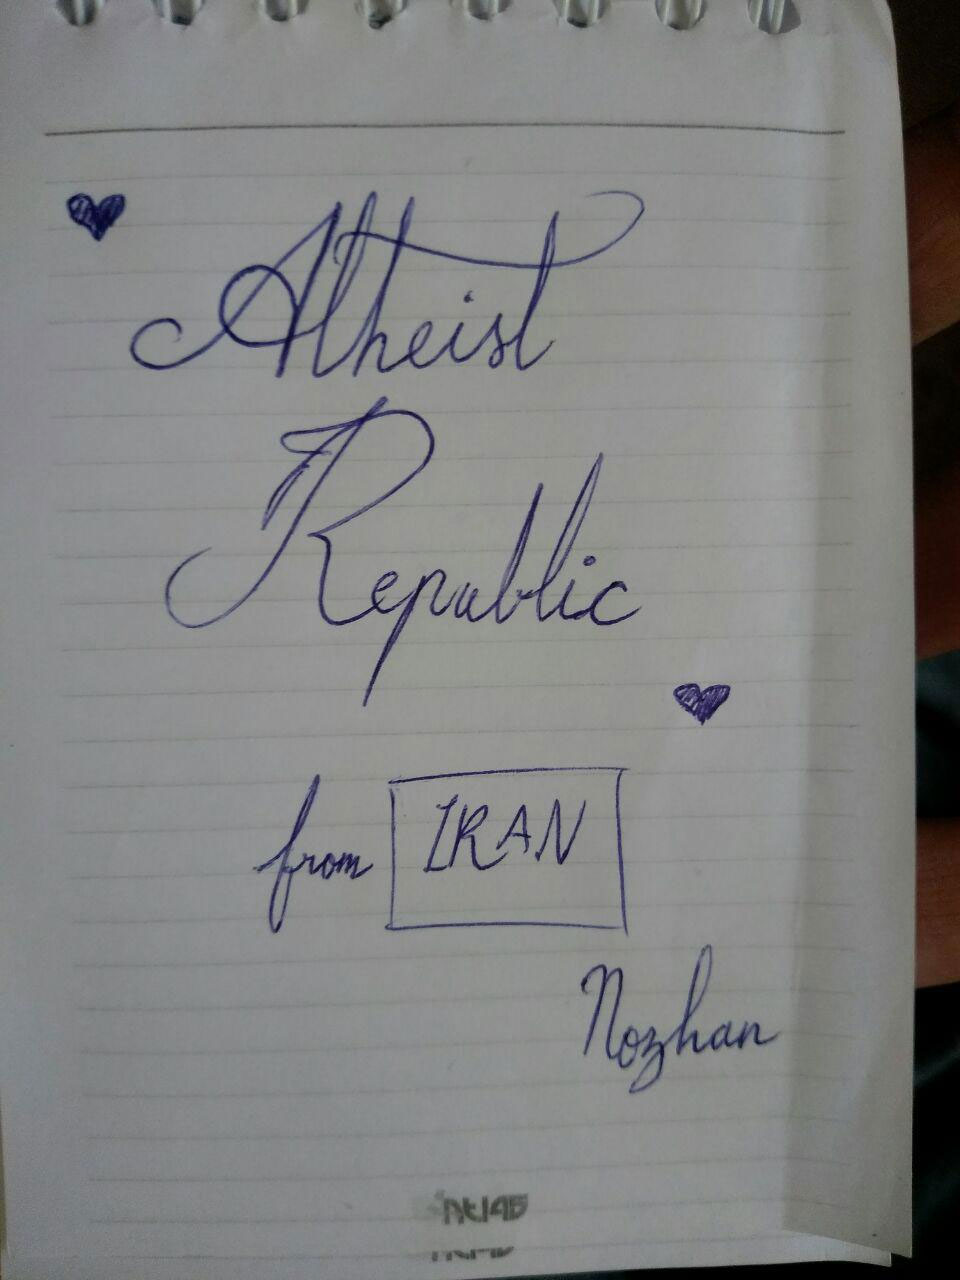 Atheist
Republic
from IRAN
Nozhan